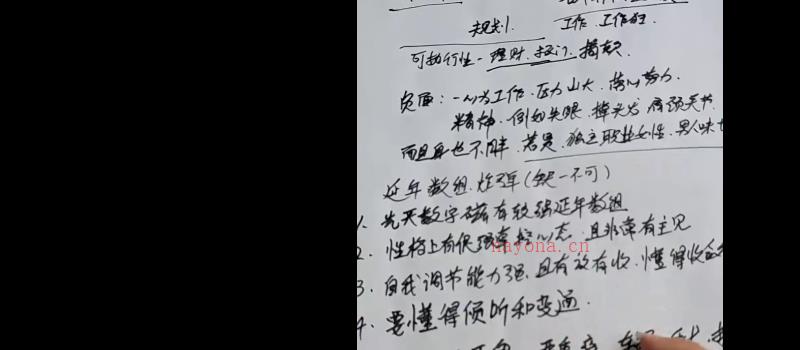 规划 工作.工作狂
可执行性-理财.
负面:一心为工作.压力山大.劳心劳力.
精神.例如失眠.掉头发.肩颈关节
而且身也不用丰.若是.独立职业女性.男人味
延年数组.炸弹(缺一不可)
1、先天数字磁有较强延年数组
2、性格上有很强掌控心态.且非常有主见
nayona.cn
3、自我调节能力强.且有放有收.懂得收
4、要懂得倾听和变通.